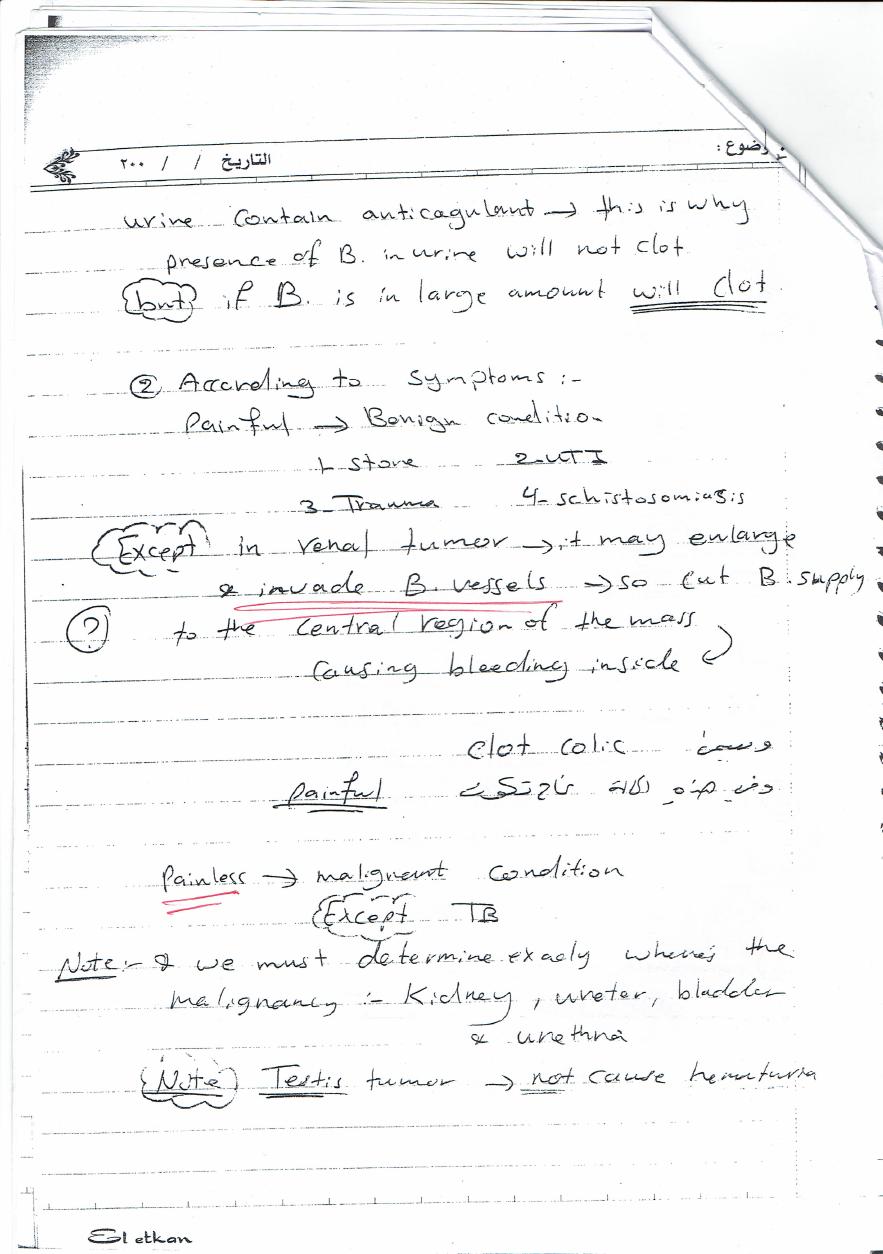 التاريخ / / ٢٠٠
urine contain anticagulant → this is why
presence of B. in urine will not clot
but if B. is in large amount will clot
② According to symptoms :-
Painful → Benign condition
1- Stone 2- UTI
3- Trauma 4- schistosomiasis
Except in renal tumor → it may enlarge
& invade B. vessels → so cut B. supply
? to the central region of the mass
causing bleeding inside
clot colic
painful
Painless → malignant condition
Except TB
Note :- & we must determine exacly where's the
malignancy :- Kidney, ureter, bladder
& urethra
Note Testis tumor → not cause hematuria
El etkan